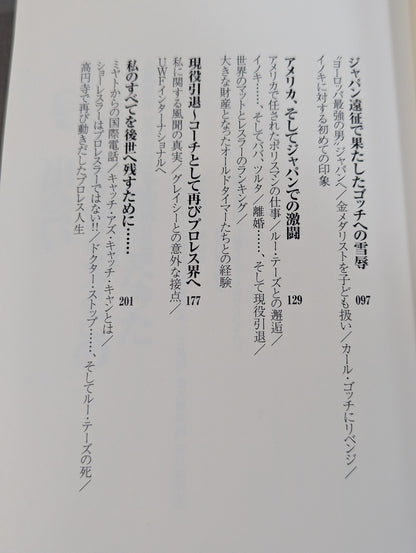 ジャパン遠征で果たしたゴッチへの雪辱 097
“ヨーロッパ最強の男”ジャパンへ／金メダリストを子ども扱い／カール・ゴッチにリベンジ／
イノキに対する初めての印象
アメリカ、そしてジャパンでの激闘 129
アメリカで任されたポリスマンの仕事／ルー・テーズとの邂逅／
イノキ……、そしてババ、ツルタ／離婚……、そして現役引退／
世界のマットとレスラーのランキング／
大きな財産となったオールドタイマーたちとの経験
現役引退〜コーチとして再びプロレス界へ 177
私に関する風聞の真実／グレイシーとの意外な接点／
UWFインターナショナルへ
私のすべてを後世へ残すために…… 201
ミヤトからの国際電話／キャッチ・アズ・キャッチ・キャンとは／
ショーレスラーはプロレスラーではない!!／ドクター・ストップ……、そしてルー・テーズの死／
高円寺で再び動きだしたプロレス人生